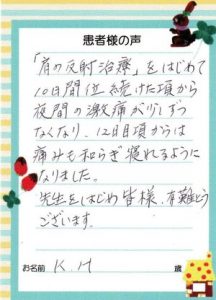 患者様の声
「肩の反射治療」をはじめて
10日間位続けた頃から
夜間の激痛が少しずつ
なくなり、12日目頃からは
痛みも和らぎ寝れるように
なりました。
先生をはじめ皆様、有難とう
ございます。
お名前 K.H 歳